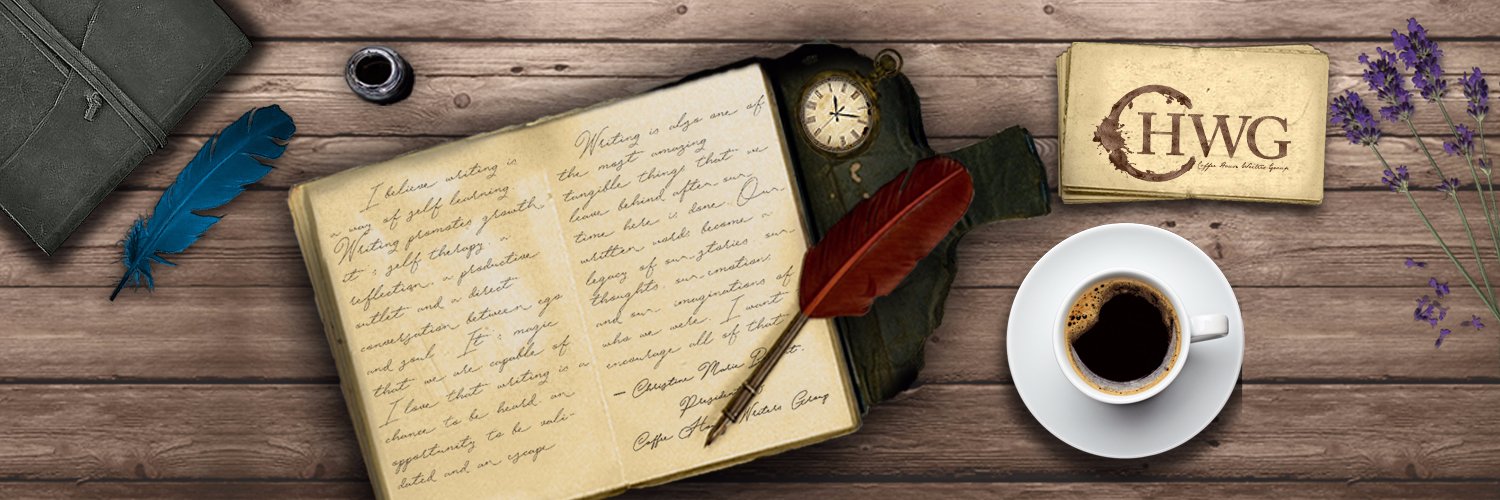 I believe writing is
a way of self learning
Writing promotes growth,
it's self therapy, a
reflection, a productive
outlet and a direct
conversation between ego
and soul. It's magic
that we are capable of
I love that writing is a
chance to be heard an
opportunity to be vali-
dated and an escape
Writing is also one of
the most amazing
tangible things that we
leave behind after our
time here is done. Our
written words become a
legacy of our stories, our
thoughts, our emotion,
and our imaginations of
who we were. I want
encourage all of that
— Christine Marie
President of
Coffee Writers Group
CHWG
Coffee House Writers Group